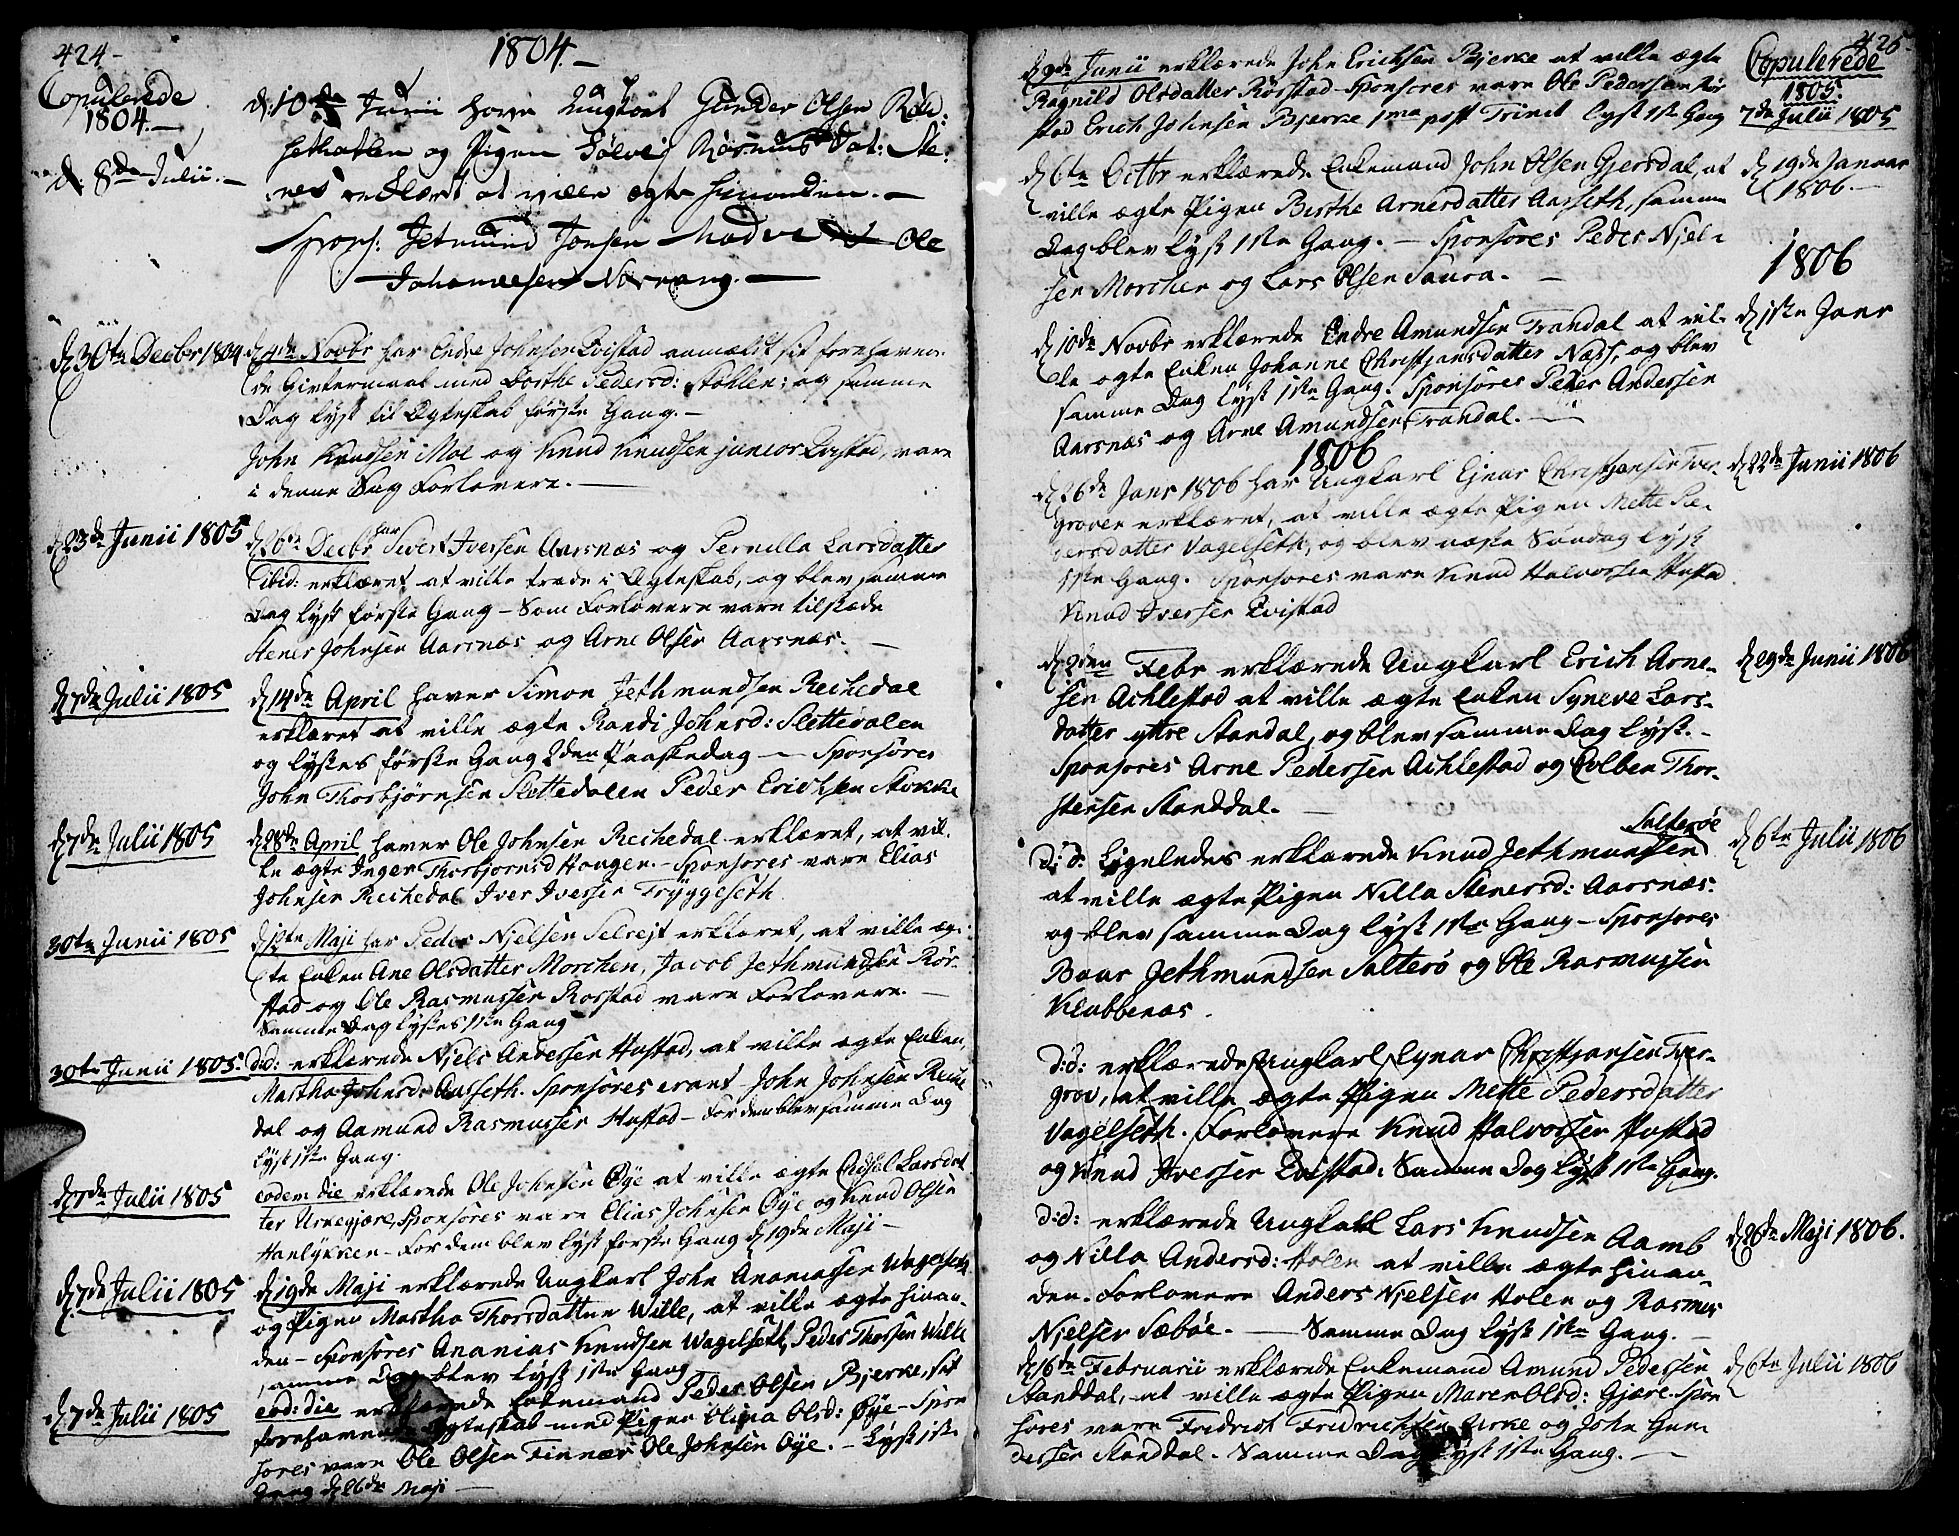 424-
1804.-
Copulerede
1804.-
d. 8de Julii.-
d: 10de Junii have Ungkarl Gunder Olsen
og Pigen Sølvei Rasmus Dat:
erklært at ville ægte hinanden.-
Spons: Jetmund Jonsen Ole
Johannesen Norvang.-
d 30te Decbr 1804
d 4de Novbr har Endre Johnsen Qvistad anmældt sit forehaven-
de Giftermaal med Dorthe Pedersd: Støhlen; og samme
Dag lyst til Ægteskab første Gang.-
John Knudsen Moe og Knud Knudsen junior Qvistad, vare
i denne Sag Forlovere.-
d 23de Junii 1805
d 26de Decbr har Sivert Iversen Aarsnæs og Pernilla Larsdatter
ibid: erklæret at ville træde i Ægteskab, og blev samme
Dag lyst første Gang - Som Forlovere vare tilstæde
Stener Johnsen Aarsnæs og Arne Olsen Aarsnæs.-
d 7de Julii 1805
d 14de April haver Simon Jethmundsen Rechedal
erklæret at ville ægte Randi Johnsd: Slettedalen
og lystes første Gang 2den Paaskedag - Sponsores
John Thorbjørnsen Slettedalen Peder Erichsen Stokke
d 7de Julii 1805
d 28de April haver Ole Johnsen Rechedal erklæret, at vil-
le ægte Inger Thorbjørnsd Hougen.- Sponsores vare Elias
Johnsen Rechedal Iver Iversen Tryggeseth
30te Junii 1805
d 12te Maji har Peder Njelsen Selvejt erklæret, at ville æg-
te Enken Ane Olsdatter Morchen, Jacob Jethmundsen Rør-
stad og Ole Rasmussen Rørstad vare Forlovere.-
Samme Dag lystes 1ste Gang
30te Junii 1805.
d:d: erklærede Njels Andersen Hustad, at ville ægte Enken,
Martha Johnsd: Aasseth. Sponsores erant John Johnsen Reche
dal og Aamund Rasmussen Hustad - For dem blev samme Dag
lyst 1ste Gang.
d 7de Julii 1805
eodem die erklærede Ole Johnsen Øye at ville ægte Larsdat
ter Urkegjære, Sponsores vare Elias Johnsen Øye, og Knud Olsen
Hanlykken - For dem blev lyst første Gang d 19de Maji -
d 7de Julii 1805
d 19de Maji erklærede Ungkarl John Ananiassen Wagelseth
og Pigen Martha Thorsdatter Wille, at ville ægte hinan-
den - Sponsores Ananias Knudsen Wagelseth, Peder Thorsen Wille
samme Dag blev lyst 1ste Gang
d 7de Julii 1805
eod: die erklærede Enkemand Peder Olsen Bjerke, sit
forehavende Ægteskab med Pigen Olina Olsd: Øye - Spon
sores vare Ole Olsen Finnæs Ole Johnsen Øye.- Lyst 1ste
Gang d 26de Maji -
425-
Copulerede
1805.
d 9de Junii erklærede John Erichsen Bjerke at ville ægte
Ragnild Olsdatter Rørstad - Sponsores vare Ole Pedersen Rør
stad Erich Johnsen Bjerke 1ma post Trinit lyst 1ste Gang
7de Julii 1805
d 6te Octbr erklærede Enkemand John Olsen Gjersdal, at
ville ægte Pigen Birthe Arnesdatter Aarseth, samme
Dag blev lyst 1ste Gang.- Sponsores Peder Njel-
sen Morchen og Lars Olsen Saura.-
d 19de Januar
1806.-
1806
d 10de Novbr erklærede Endre Amundsen Trandal at vil-
le ægte Enken Johanne Christjansdatter Næss, og blev
samme Dag lyst 1ste Gang. Sponsores Peder Andersen
Aarsnæs og Arne Amundsen Trandal.-
d 1ste Janr
1806
d 26de Janr 1806 har Ungkarl Ejnar Christjansen Tver-
groven erklæret, at ville ægte Pigen Mette Pe-
dersdatter Vagelseth, og blev næste Søndag lyst
1ste Gang. Sponsores vare Knud Halvorsen Hustad
Knud Iversen Qvistad
d 22de Junii 1806
d 2den Febr erklærede Ungkarl Erich Arne-
sen Achlestad at ville ægte Enken Syneve Lars-
datter yttre Standal, og blev samme Dag lyst.-
Sponsores Arne Pedersen Achlestad og Colben Thor-
stensen Standdal.-
d 29de Junii 1806
d:d: Ligeledes erklærede Knud Jethmundsen Salterøe
at ville ægte Pigen Nilla Stenersd: Aarsnæs.
og blev samme Dag lyst 1ste Gang - Sponsores
Baar Jethmundsen Salterø og Ole Rasmussen
Klubbenæs.
d 6te Julii 1806
d:d: erklærede Ungkarl Eynar Christjansen Tver-
grov, at ville ægte Pigen Mette Pedersdatter
Vagelseth. Forlovere Knud Halvorsen Hustad
og Knud Iversen Qvistad. Samme Dag lyst 1ste Gang.
d:d: erklærede Ungkarl Lars Knudsen Aamb
og Nilla Andersd: Holen at ville ægte hinan-
den. Forlovere Anders Njelsen Holen og Rasmus
Njelsen Sæbøe.- Samme Dag lyst 1ste Gang.-
d 26de Maji 1806.
d 16de Februarii erklærede Enkemand Amund Pedersen
Standdal, at ville ægte Pigen Maren Olsd: Gjære. Spon
sores vare Fridrich Fridrichsen Urke og John Gun
dersen Standdal. Samme Dag lyst 1ste Gang.-
d 6te Julii 1806